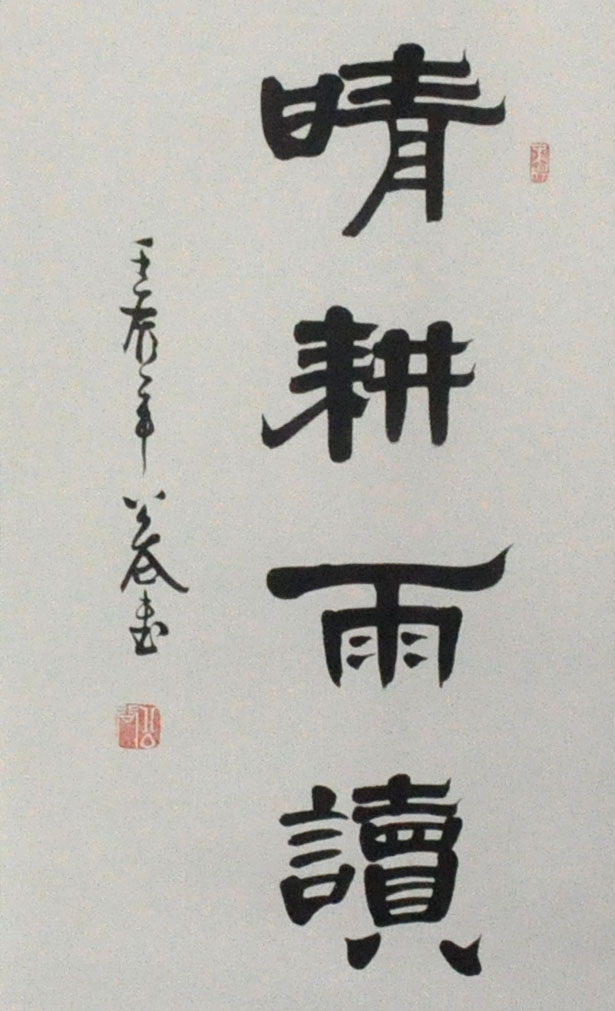 晴耕雨讀
壬辰年
書